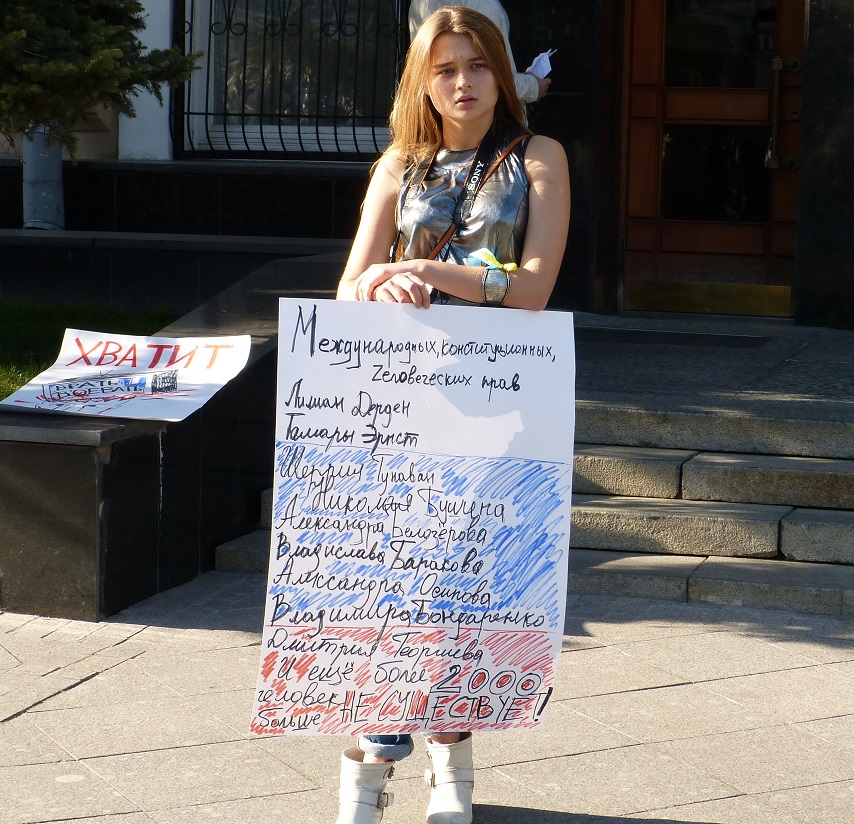 SONY
ХВАТИТ
ВРАТЬ
Международных, конституционных,
Человеческих прав
Лилиан Дерден
Тамары Эрнст
Шеррил Гунаван
Николая Бущина
Александра Белозёрова
Владислава Баракова
Александра Осипова
Владимира Бондаренко
Дмитрия Георгиева
И ещё более 2000
человек
больше НЕ СУЩЕСТВУЕТ!